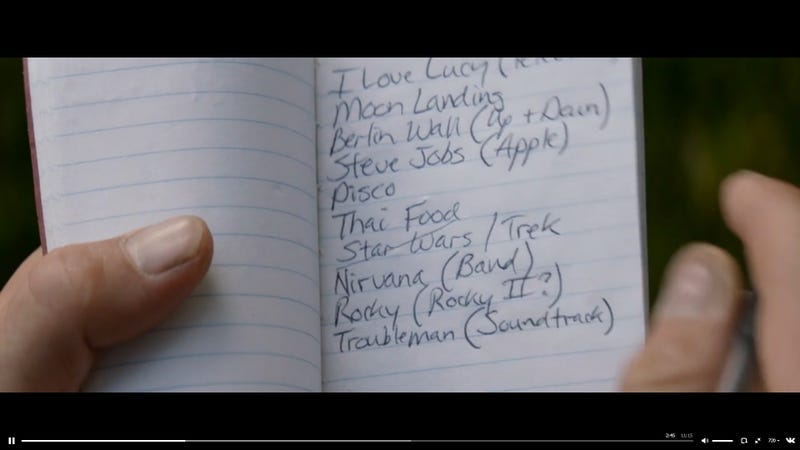 I Love Lucy
Moon Landing
Berlin Wall (Up + Down)
Steve Jobs (Apple)
Disco
Thai Food
Star Wars / Trek
Nirvana (Band)
Rocky (Rocky II?)
Troubleman (Soundtrack)
2:45 11:15
720